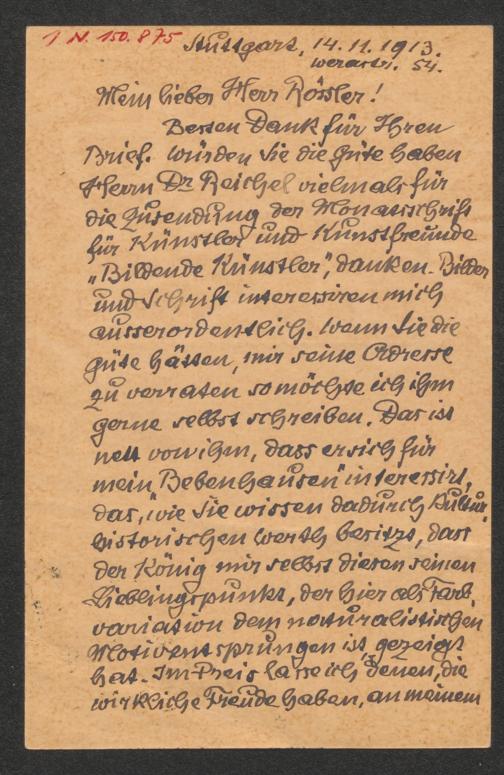 I. N. 150.875
Stuttgart, 14.11.1913.
Werastr. 54.
Mein lieber Herr Rössler!
Besten Dank für Ihren
Brief. Würden Sie die Güte haben
Herrn Dr Reichel vielmals für
die Zusendung der Monatsschrift
für Künstler und Kunstfreunde
„Bildende Künstler”, danken. Bilder
und Schrift interessiren mich
ausserordentlich. Wenn Sie die
Güte hätten, mir seine Adresse
zu verraten so möchte ich ihm
gerne selbst schreiben. Das ist
nett von ihm, dass er sich für
mein „Bebenhausen” interessirt,
das, wie Sie wissen dadurch Kultur-
historischen Werth besitzt, dass
der König mir selbst diesen seinen
Lieblingspunkt, der hier als Farb-
variation dem naturalistischen
Motiv entsprungen ist gezeigt
hat. Im Preis lasse ich denen, die
wirkliche Freude haben, an meinem